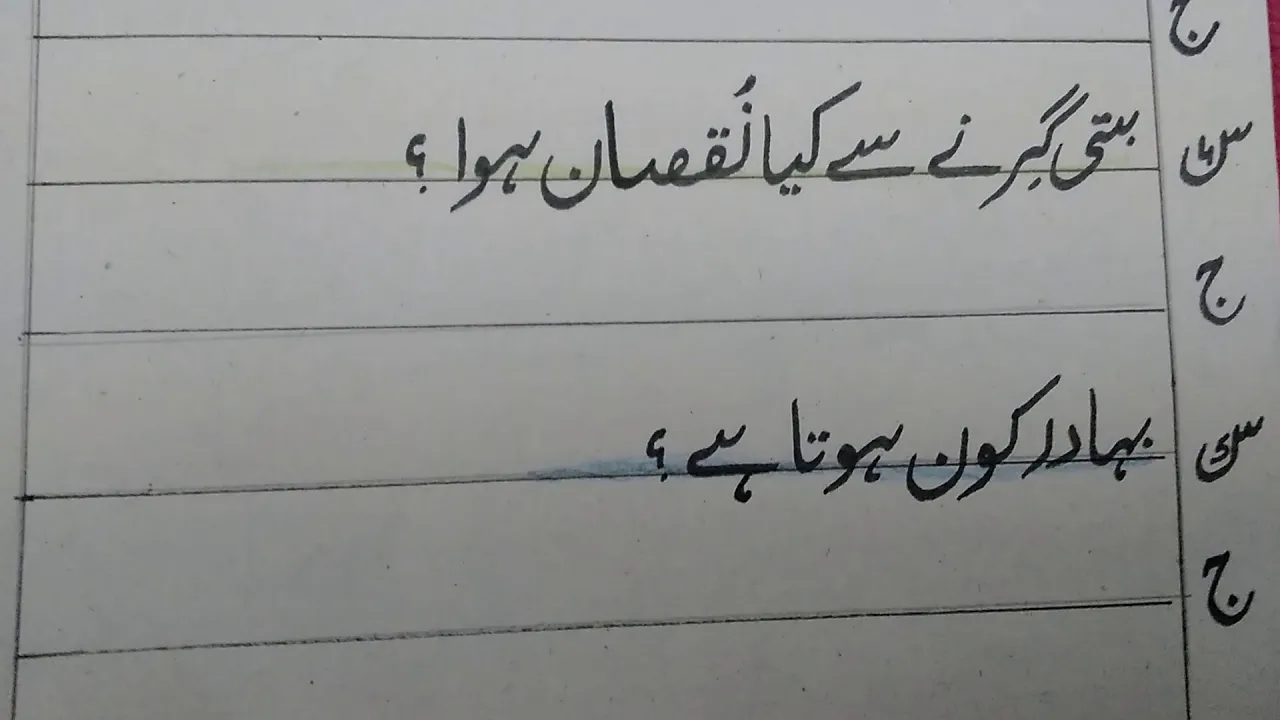 ج
س۴ بتی گِرنے سے کیا نُقصان ہوا ؟
ج
س۵ بہادر کون ہوتا ہے ؟
ج